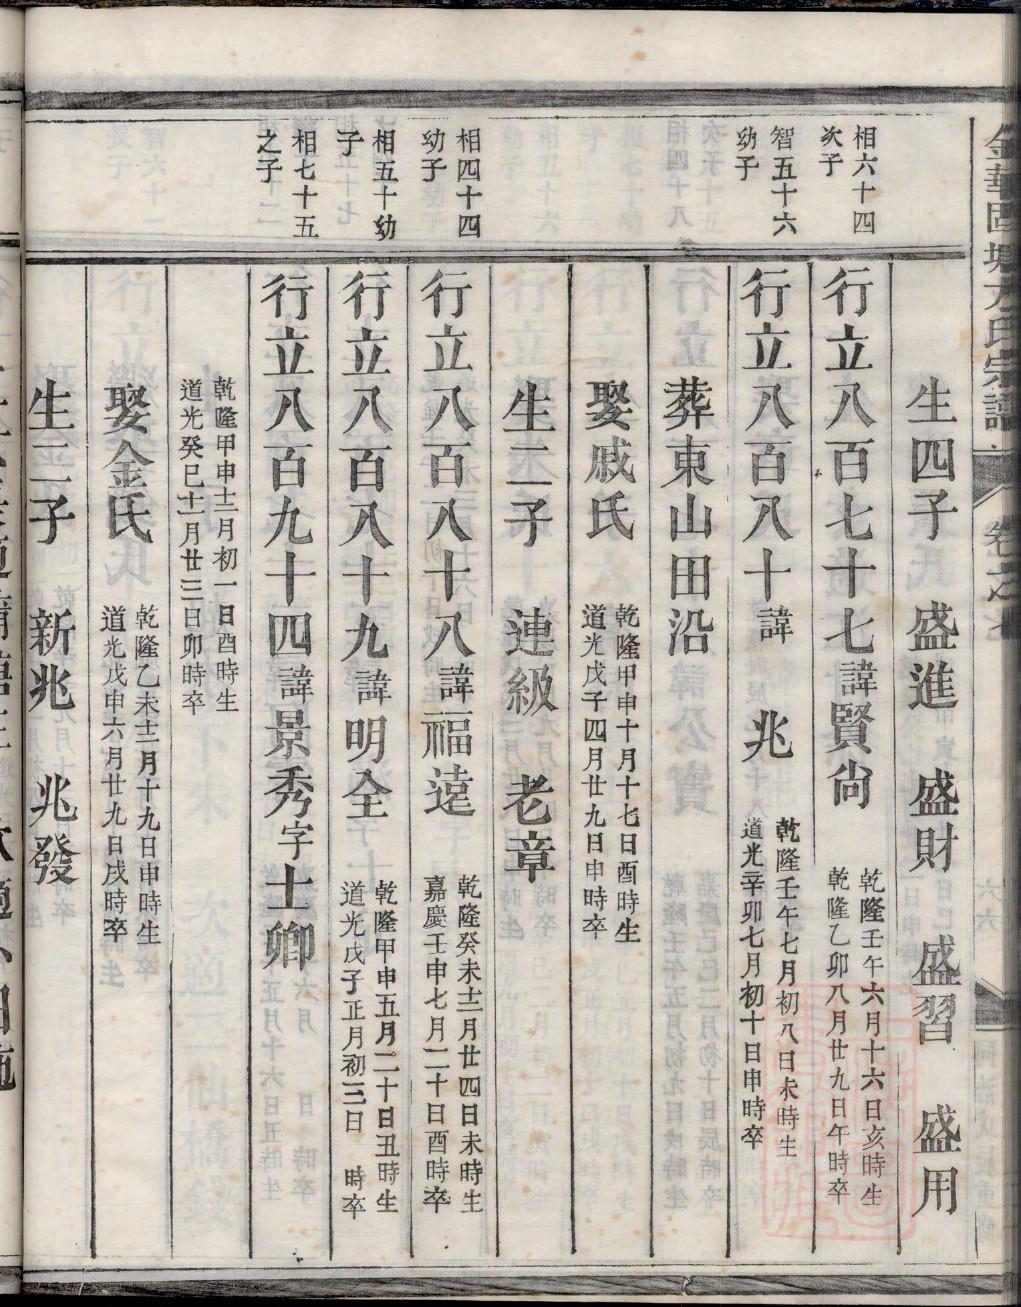 金華回塘方氏宗譜
卷之七
生四子　盛進　盛財　盛習　盛用
相六十四
次子
行立八百七十七諱賢尙
乾隆壬午六月十六日亥時生
乾隆乙卯八月廿九日午時卒
智五十六
幼子
行立八百八十諱　兆
乾隆壬午七月初八日未時生
道光辛卯七月初十日申時卒
葬東山田沿
娶戚氏
乾隆甲申十月十七日酉時生
道光戊子四月廿九日申時卒
生二子　連級　老章
相四十四
幼子
行立八百八十八諱福遠
乾隆癸未十二月廿四日未時生
嘉慶壬申七月二十日酉時卒
相五十幼
子
行立八百八十九諱明全
乾隆甲申五月二十日丑時生
道光戊子正月初三日　時卒
相七十五
之子
行立八百九十四諱景秀字士卿
乾隆甲申十二月初一日酉時生
道光癸巳十一月廿三日卯時卒
娶金氏
乾隆乙未十二月十九日申時生
道光戊申六月廿九日戌時卒
生二子　新兆　兆發